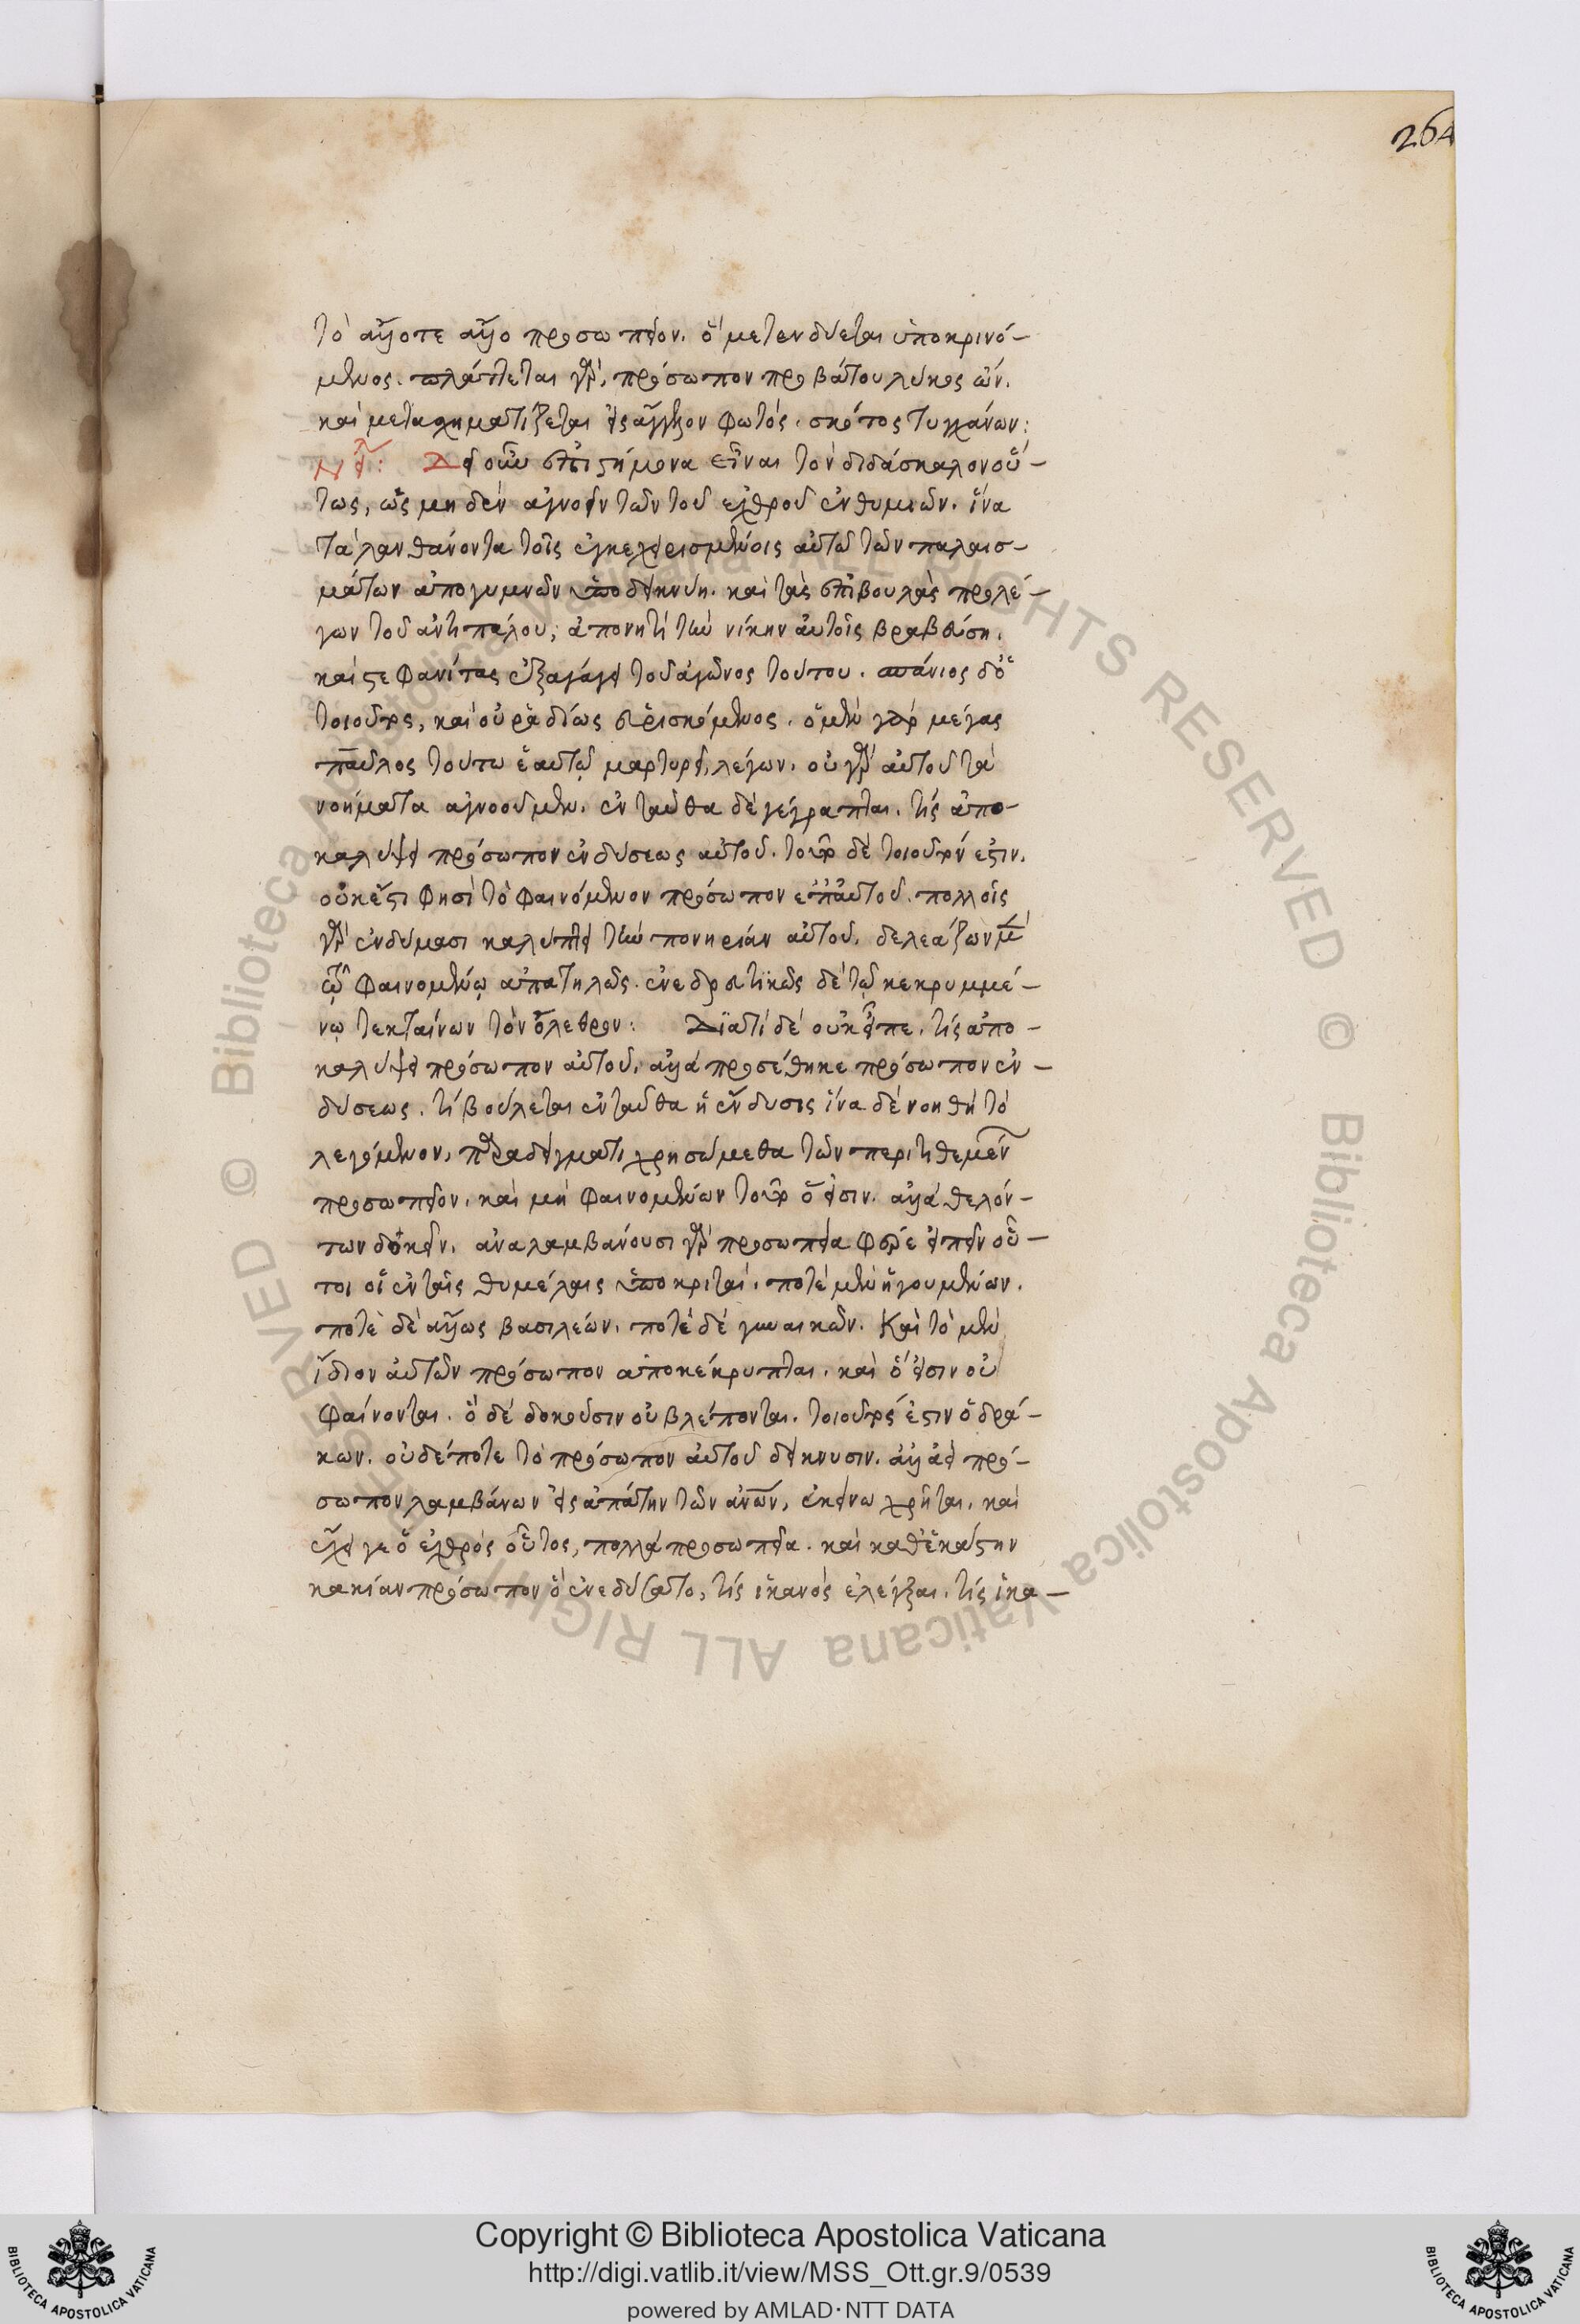 264
τὸ ἄλλοτε ἄλλο προσωπεῖον. ὃ μετενδύεται ὑποκρινό-
μενος. πλάττεται γὰρ, πρόσωπον προβάτου λύκος ὤν.
καὶ μετασχηματίζεται εἰς ἄγγελον φωτός. σκότος τυγχάνων:
Δεῖ οὖν ἐπιστήμονα εἶναι τὸν διδάσκαλον οὕ-
τως, ὡς μηδὲν ἀγνοεῖν τῶν τοῦ ἐχθροῦ ἐνθυμιῶν. ἵνα
τὰ λανθάνοντα τοῖς ἐγκεχειρισμένοις αὐτῶ τῶν παλαισ-
μάτων ἀπογυμνῶν ὑποδεικνύη. καὶ τὰς ἐπιβουλὰς προλέ-
γων τοῦ ἀντιπάλου, ἀπονητὶ τὴν νίκην αὐτοῖς βραβεύση.
καὶ στεφανίτας ἐξαγάγει τοῦ ἀγῶνος τούτου. σπάνιος δὲ ὁ
τοιοῦτος, καὶ οὐ ραδίως εὑρισκόμενος. ὁ μὲν γὰρ μέγας
παῦλος τοῦτο ἑαυτῷ μαρτυρεῖ, λέγων. οὐ γὰρ αὐτοῦ τὰ
νοήματα ἀγνοοῦμεν. ἐνταῦθα δὲ γέγραπται. τίς ἀπο-
καλύψει πρόσωπον ἐνδύσεως αὐτοῦ. τοῦτο δὲ τοιοῦτόν ἐστιν.
οὐκ ἔστι φησὶ τὸ φαινόμενον πρόσωπον ἐπ' αὐτοῦ. πολλοῖς
γὰρ ἐνδύμασι καλύπτει τὴν πονηρίαν αὐτοῦ. δελεάζων μὲν
τῷ φαινομένῳ ἀπατηλῶς. ἐνεδρευτικῶς δὲ τῷ κεκρυμμέ-
νῳ τεκταίνων τὸν ὄλεθρον: Διατί δὲ οὐκ εἶπε. τίς ἀπο-
καλύψει πρόσωπον αὐτοῦ. ἀλλὰ προσέθηκε πρόσωπον ἐν-
δύσεως. τί βούλεται ἐνταῦθα ἡ ἔνδυσις ἵνα δὲ νοηθῆ τὸ
λεγόμενον, παραδείγματι χρησώμεθα τῶν περιτιθεμένων
προσωπεῖον. καὶ μὴ φαινομένων τοῦτο ὅ εἰσιν. ἀλλὰ θελόν-
των δοκεῖν. ἀναλαμβάνουσι γὰρ προσωπεῖα φέρε εἰπεῖν οὗ-
τοι οἱ ἐν ταῖς θυμέλαις ὑποκριταί. ποτὲ μὲν ἡγουμένων.
ποτὲ δὲ ἄλλως βασιλέων. ποτὲ δὲ γυναικῶν. Καὶ τὸ μὲν
ἴδιον αὐτῶν πρόσωπον ἀποκέκρυπται. καὶ ὅ εἰσιν οὐ
φαίνονται. ὃ δὲ δοκοῦσιν οὐ βλέπονται. τοιοῦτός ἐστιν ὁ δρά-
κων. οὐδέποτε τὸ πρόσωπον αὐτοῦ δείκνυσιν. ἀλλ' ἀεὶ πρό-
σωπον λαμβάνων εἰς ἀπάτην τῶν ἀνων, ἐκείνω χρῆται. καὶ
ἔχει γε ὁ ἐχθρὸς οὗτος, πολλὰ προσωπεῖα. καὶ καθ' ἑκάστην
κακίαν πρόσωπον ὃ ἐνεδύσατο, τίς ἱκανὸς ἐλέγξαι. τίς ἱκα-
Copyright © Biblioteca Apostolica Vaticana
http://digi.vatlib.it/view/MSS_Ott.gr.9/0539
powered by AMLAD·NTT DATA